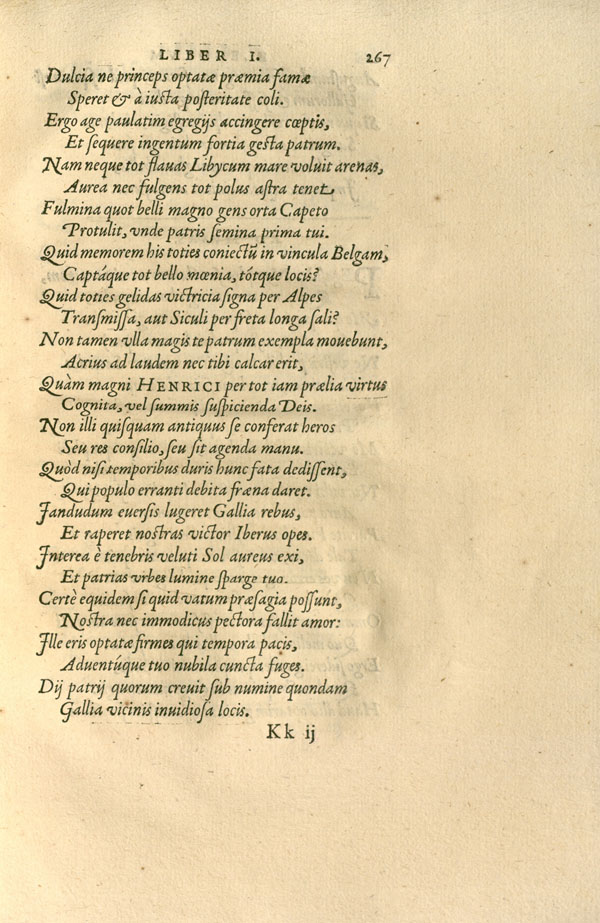 LIBER I. 267
Dulcia ne princeps optatæ præmia famæ
Speret & à iusta posteritate coli.
Ergo age paulatim egregijs accingere cœptis,
Et sequere ingentum fortia gesta patrum.
Nam neque tot flauas Libycum mare voluit arenas,
Aurea nec fulgens tot polus astra tenet,
Fulmina quot belli magno gens orta Capeto
Protulit, vnde patris semina prima tui.
Quid memorem his toties coniectũ in vincula Belgam,
Captáque tot bello mœnia, tótque locis?
Quid toties gelidas victricia signa per Alpes
Transmissa, aut Siculi per freta longa sali?
Non tamen vlla magis te patrum exempla mouebunt,
Acrius ad laudem nec tibi calcar erit,
Quàm magni HENRICI per tot iam prælia virtus
Cognita, vel summis suspicienda Deis.
Non illi quisquam antiquus se conferat heros
Seu res consilio, seu sit agenda manu.
Quòd nisi temporibus duris hunc fata dedissent,
Qui populo erranti debita fræna daret.
Iandudum euersis lugeret Gallia rebus,
Et raperet nostras victor Iberus opes.
Interea è tenebris veluti Sol aureus exi,
Et patrias vrbes lumine sparge tuo.
Certè equidem si quid vatum præsagia possunt,
Nostra nec immodicus pectora fallit amor:
Ille eris optatæ firmes qui tempora pacis,
Aduentúque tuo nubila cuncta fuges.
Dij patrij quorum creuit sub numine quondam
Gallia vicinis inuidiosa locis.
Kk ij